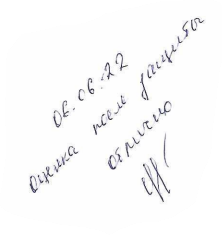 06.06.22
оценка после защиты
отлично